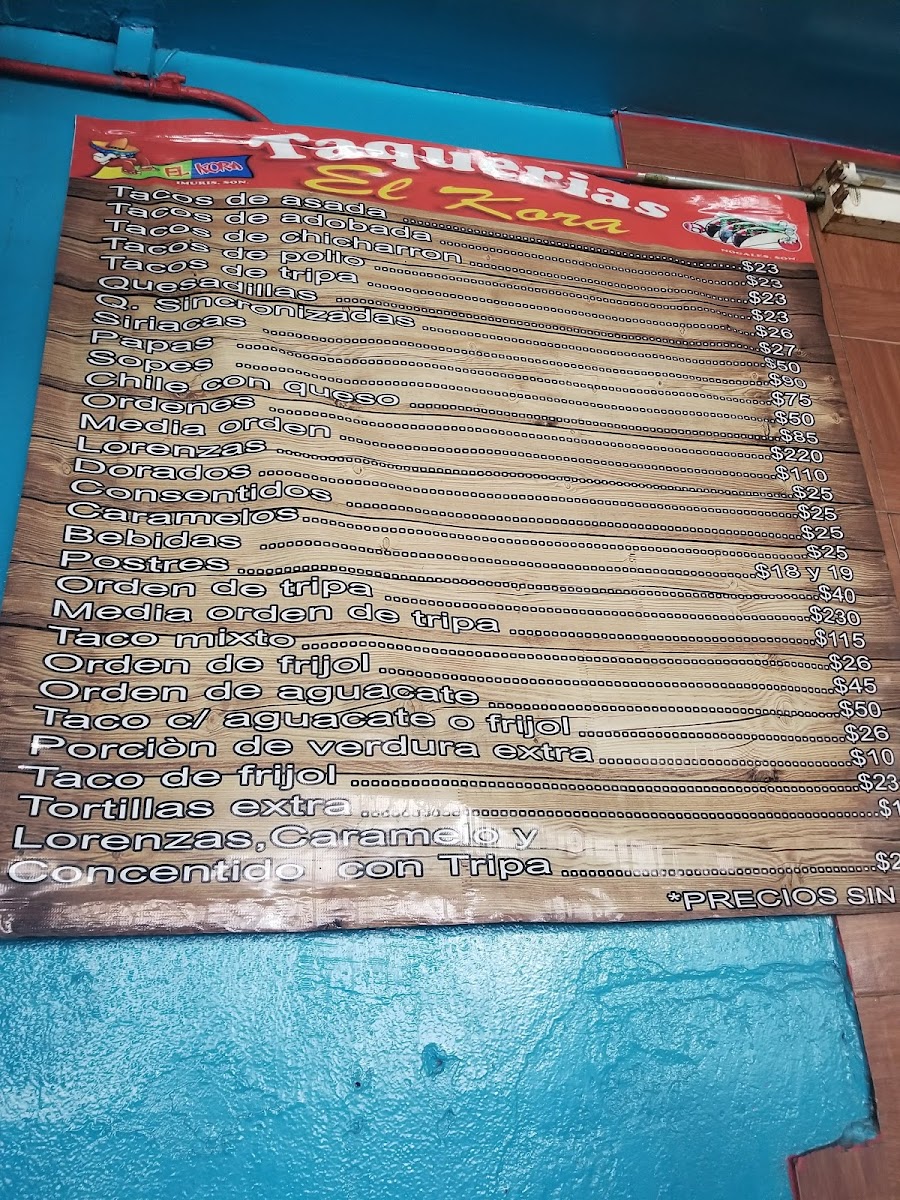 EL KORA
IMURIS, SON.
Taquerias
El Kora
NOGALES, SON.
Tacos de asada ........ $23
Tacos de adobada ........ $23
Tacos de chicharron ........ $23
Tacos de pollo ........ $23
Tacos de tripa ........ $26
Quesadillas ........ $27
Q. Sincronizadas ........ $50
Siriacas ........ $90
Papas ........ $75
Sopes ........ $50
Chile con queso ........ $85
Ordenes ........ $220
Media orden ........ $110
Lorenzas ........ $25
Dorados ........ $25
Consentidos ........ $25
Caramelos ........ $25
Bebidas ........ $18 y 19
Postres ........ $40
Orden de tripa ........ $230
Media orden de tripa ........ $115
Taco mixto ........ $26
Orden de frijol ........ $45
Orden de aguacate ........ $50
Taco c/ aguacate o frijol ........ $26
Porciòn de verdura extra ........ $10
Taco de frijol ........ $23
Tortillas extra ........ $1
Lorenzas,Caramelo y
Concentido con Tripa ........ $2
*PRECIOS SIN